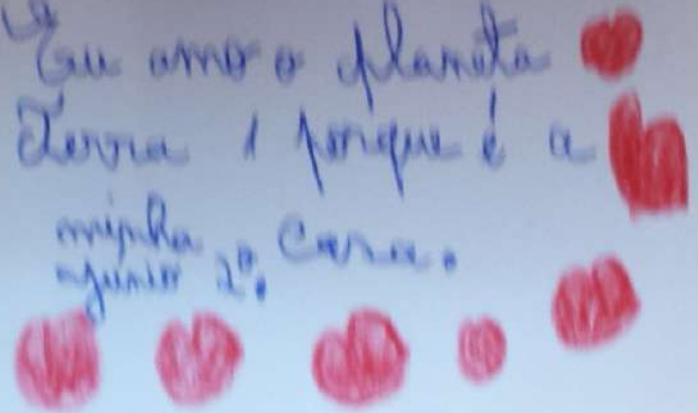 Eu amo o planeta
Terra , porque é a
minha Casa.
Junior 2º.